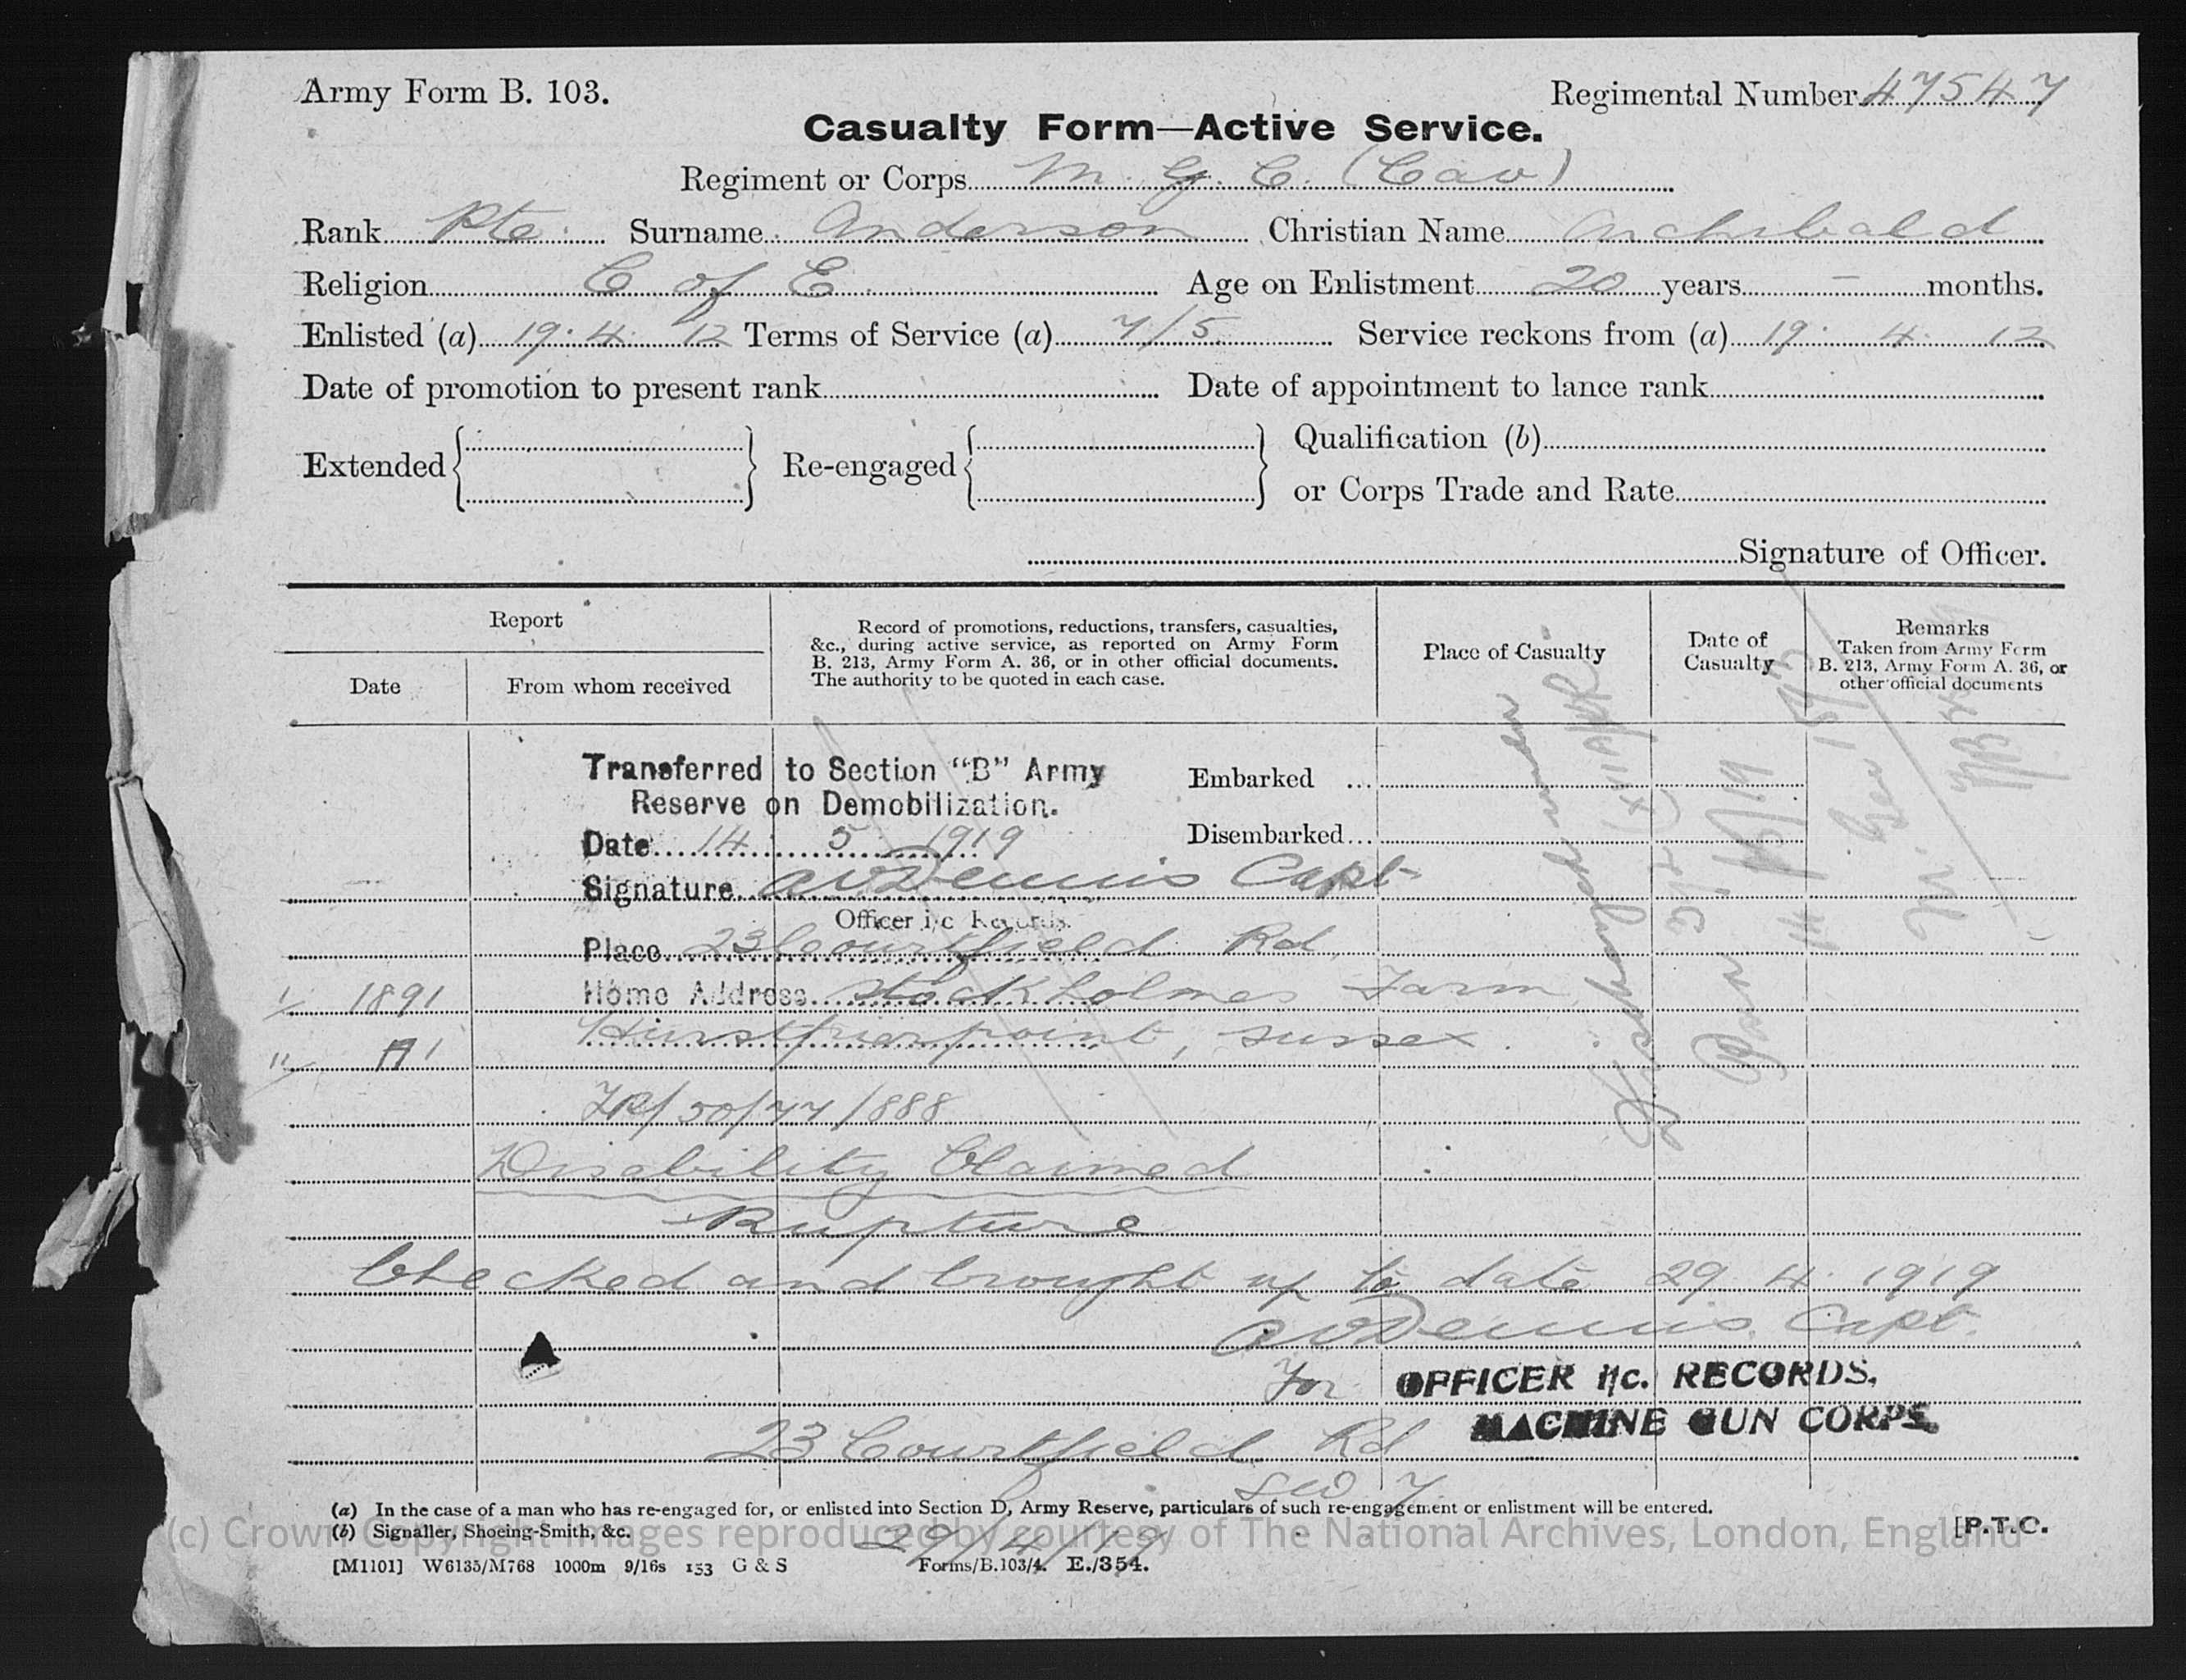 Army Form B. 103.
Regimental Number 47547
Casualty Form—Active Service.
Regiment or Corps M. G. C. (Cav)
Rank Pte. Surname Anderson Christian Name Archibald
Religion C of E. Age on Enlistment 20 years — months.
Enlisted (a) 19. 4. 12 Terms of Service (a) 7/5 Service reckons from (a) 19. 4. 12
Date of promotion to present rank Date of appointment to lance rank
Extended Re-engaged Qualification (b)
or Corps Trade and Rate
Signature of Officer.
Report
Date
From whom received
Record of promotions, reductions, transfers, casualties,
&c., during active service, as reported on Army Form
B. 213, Army Form A. 36, or in other official documents.
The authority to be quoted in each case.
Place of Casualty
Date of
Casualty
Remarks
Taken from Army Form
B. 213, Army Form A. 36, or
other official documents
Transferred to Section "B" Army
Reserve on Demobilization.
Embarked ...
Date 14. 5. 1919
Disembarked...
Signature Dennis Capt
Officer i/c Records.
Place 23 Courtfield Rd,
1891 Home Address Stockholmes Farm
A1 Hurstpierpoint, Sussex.
/888
Disability Claimed
Rupture
Checked and brought up to date 29. 4. 1919
Dennis. Capt.
For OFFICER i/c. RECORDS,
MACHINE GUN CORPS.
23 Courtfield Rd
SW 7.
29/4/19
(a) In the case of a man who has re-engaged for, or enlisted into Section D, Army Reserve, particulars of such re-engagement or enlistment will be entered.
(b) Signaller, Shoeing-Smith, &c.
[P.T.O.
(c) Crown Copyright Images reproduced by courtesy of The National Archives, London, England
[M1101] W6135/M768 1000m 9/16s 153 G & S Forms/B.103/4. E./354.